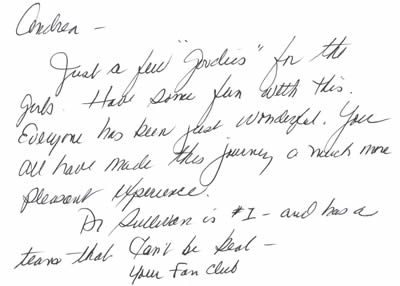 Andrea -
Just a few "Goodies" for the
girls. Have some fun with this.
Everyone has been just wonderful. You
all have made this journey a much more
pleasant experience.
Dr Sullivan is #1 - and has a
team that can't be beat -
Your Fan Club